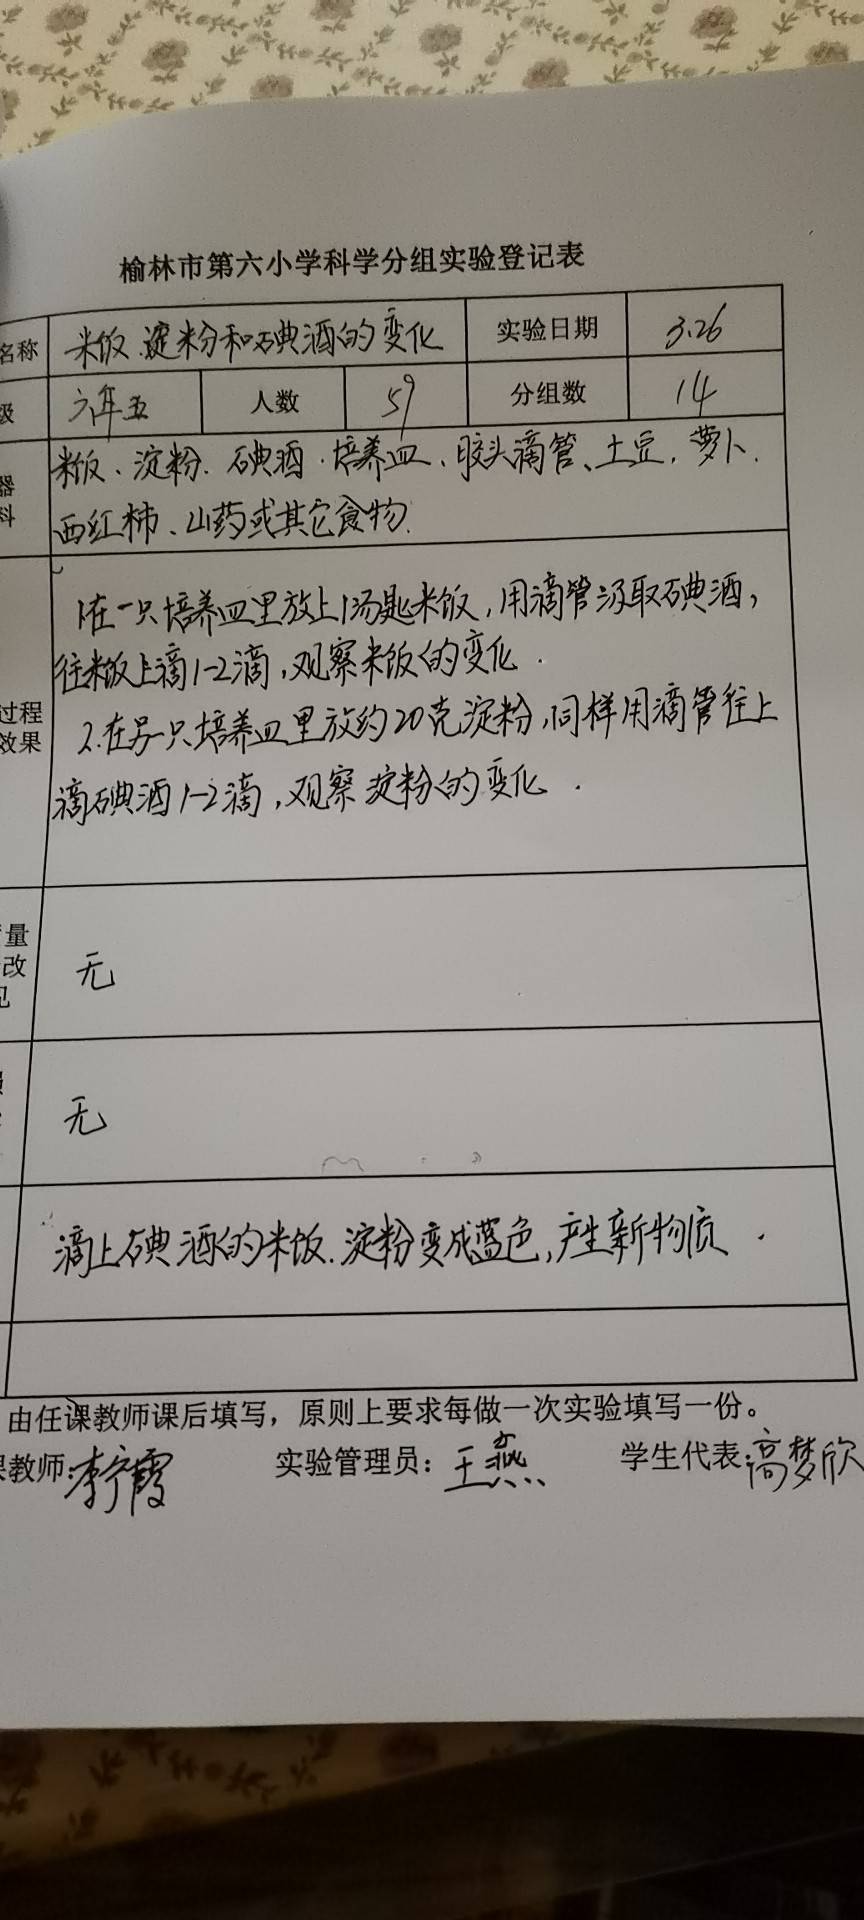 榆林市第六小学科学分组实验登记表
名称 米饭.淀粉和碘酒的变化 实验日期 3.26
级 六年五 人数 59 分组数 14
器 米饭、淀粉.碘酒.培养皿、胶头滴管、土豆.萝卜.
料 西红柿、山药或其它食物.
1在一只培养皿里放上1汤匙米饭,用滴管汲取碘酒,
往米饭上滴1-2滴,观察米饭的变化.
过程 2.在另一只培养皿里放约20克淀粉,同样用滴管往上
效果
滴碘酒1-2滴,观察淀粉的变化.
量
改 无
见
无
滴上碘酒的米饭.淀粉变成蓝色,产生新物质.
由任课教师课后填写，原则上要求每做一次实验填写一份。
课教师: 实验管理员：王燕 学生代表:高梦欣